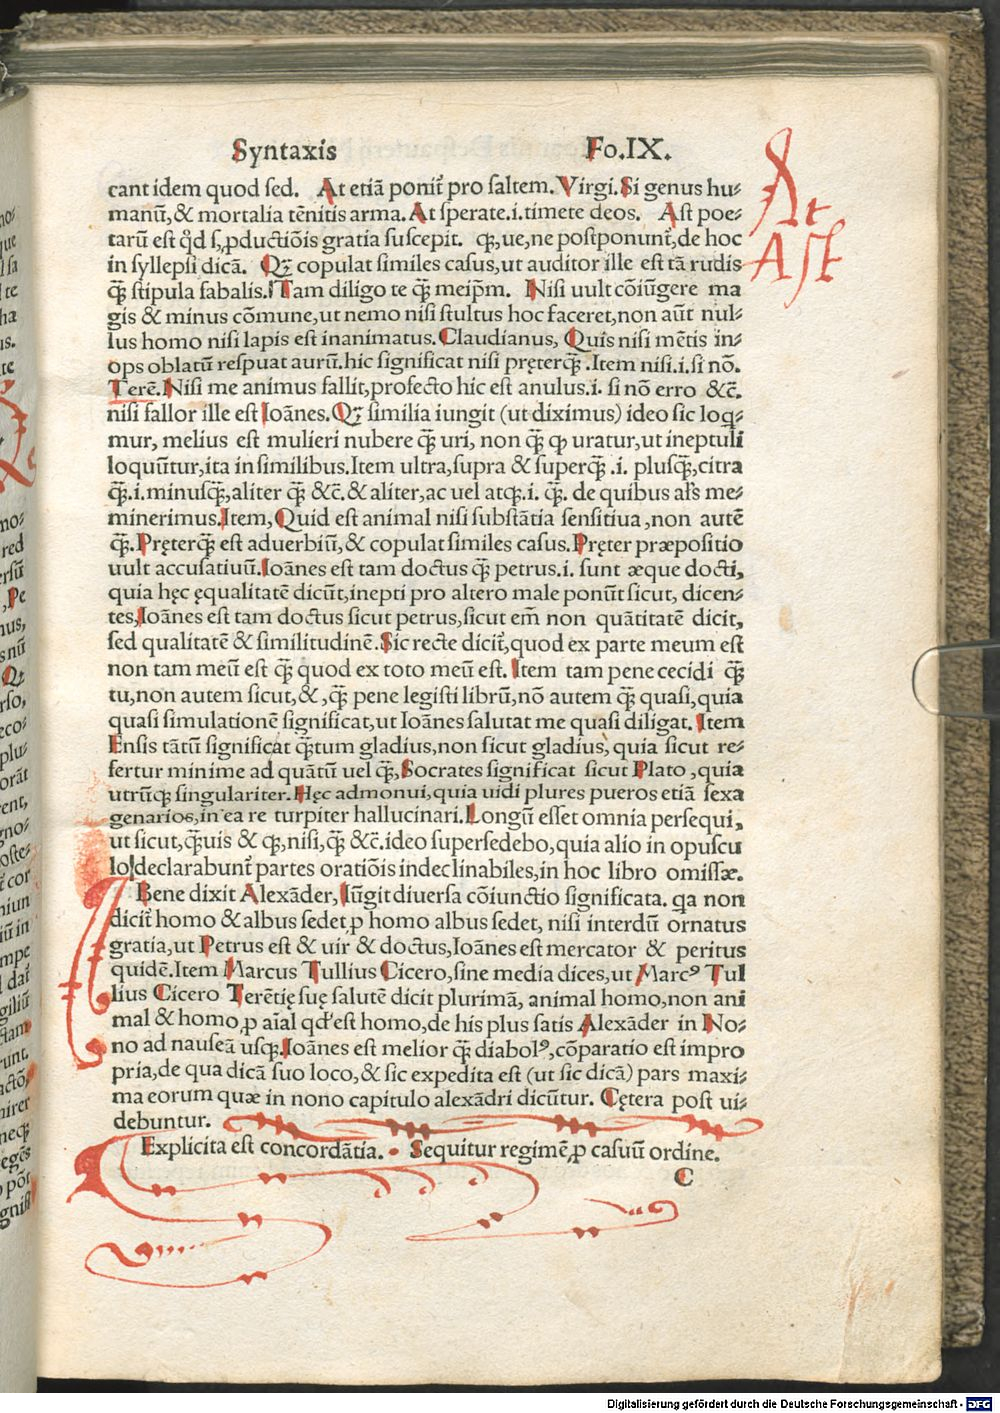 Syntaxis Fo.IX.
cant idem quod sed. At etiã poniť pro saltem. Virgi. Si genus hu-
manũ, & mortalia tẽnitis arma. At sperate.i. timete deos. Ast poe-
tarũ est qđ ꝓductiõis gratia suscepit. ꝗ, ue, ne postponunť, de hoc
in syllepsi dicã. Qꝫ copulat similes casus, ut auditor ille est tã rudis
q̃ꝫ stipula fabalis. Tam diligo te q̃ꝫ meip̃m. Nisi uult cõiũgere ma
gis & minus cõmune, ut nemo nisi stultus hoc faceret, non aũt nul-
lus homo nisi lapis est inanimatus. Claudianus, Quis nisi mẽtis in-
ops oblatũ respuat aurũ. hic significat nisi pręterq̃ꝫ. Item nisi.i. si nõ.
Terẽ. Nisi me animus fallit, profecto hic est anulus.i. si nõ erro &c̃.
nisi fallor ille est Ioãnes. Qꝫ similia iungit (ut diximus) ideo sic loq̃-
mur, melius est mulieri nubere q̃ꝫ uri, non q̃ꝫ ꝙ uratur, ut ineptuli
loquũtur, ita in similibus. Item ultra, supra & superq̃ꝫ .i. plusq̃ꝫ, citra
q̃ꝫ.i. minusq̃ꝫ, aliter q̃ꝫ &c̃. & aliter, ac uel atqꝫ.i. q̃ꝫ. de quibus al's me-
minerimus. Item, Quid est animal nisi substãtia sensitiua, non autẽ
q̃ꝫ. Pręterq̃ꝫ est aduerbiũ, & copulat similes casus. Pręter præpositio
uult accusatiuũ. Ioãnes est tam doctus q̃ꝫ petrus.i. sunt æque docti,
quia hęc ęqualitatẽ dicũt, inepti pro altero male ponũt sicut, dicen-
tes, Ioãnes est tam doctus sicut petrus, sicut em̃ non quãtitatẽ dicit,
sed qualitatẽ & similitudinẽ. Sic recte diciť, quod ex parte meum est
non tam meũ est q̃ꝫ quod ex toto meũ est. Item tam pene cecidi q̃ꝫ
tu, non autem sicut, &, q̃ꝫ pene legisti librũ, nõ autem q̃ꝫ quasi, quia
quasi simulationẽ significat, ut Ioãnes salutat me quasi diligat. Item
Ensis tãtũ significat q̃ꝫtum gladius, non sicut gladius, quia sicut re-
fertur minime ad quãtũ uel q̃ꝫ, Socrates significat sicut Plato, quia
utrũqꝫ singulariter. Hęc admonui, quia uidi plures pueros etiã sexa
genarios, in ea re turpiter hallucinari. Longũ esset omnia persequi,
ut sicut, q̃ꝫuis & ꝙ, nisi, q̃ꝫ &c̃. ideo supersedebo, quia alio in opuscu
lo declarabunť partes oratiõis indeclinabiles, in hoc libro omissæ.
Bene dixit Alexãder, Iũgit diuersa cõiunctio significata. qa non
diciť homo & albus sedet, ꝓ homo albus sedet, nisi interdũ ornatus
gratia, ut Petrus est & uir & doctus, Ioãnes est mercator & peritus
quidẽ. Item Marcus Tullius Cicero, sine media dices, ut Marcꝰ Tul
lius Cicero Terẽtię suę salutẽ dicit plurimã, animal homo, non ani
mal & homo, ꝓ aĩal qđ est homo, de his plus satis Alexãder in No-
no ad nauseã usqꝫ. Ioãnes est melior q̃ꝫ diabolꝰ, cõparatio est impro
pria, de qua dicã suo loco, & sic expedita est (ut sic dicã) pars maxi-
ma eorum quæ in nono capitulo alexãdri dicũtur. Cętera post ui-
debuntur.
Explicita est concordãtia. Sequitur regimẽ, ꝓ casuũ ordine.
C
At
Ast
Digitalisierung gefördert durch die Deutsche Forschungsgemeinschaft - DFG